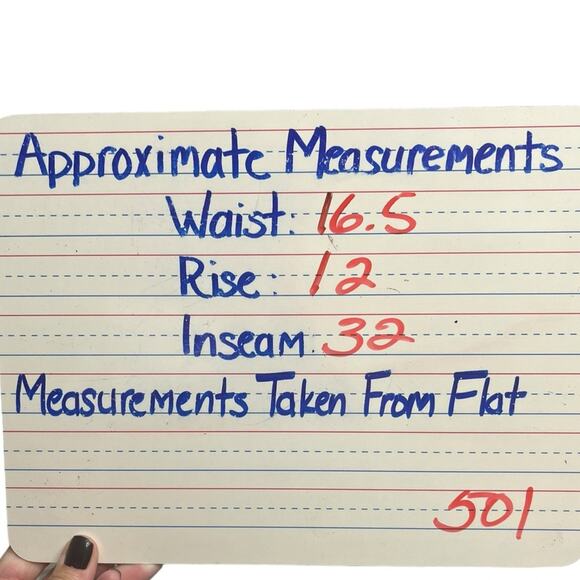 Approximate Measurements
Waist: 16.5
Rise: 12
Inseam: 32
Measurements Taken From Flat
501